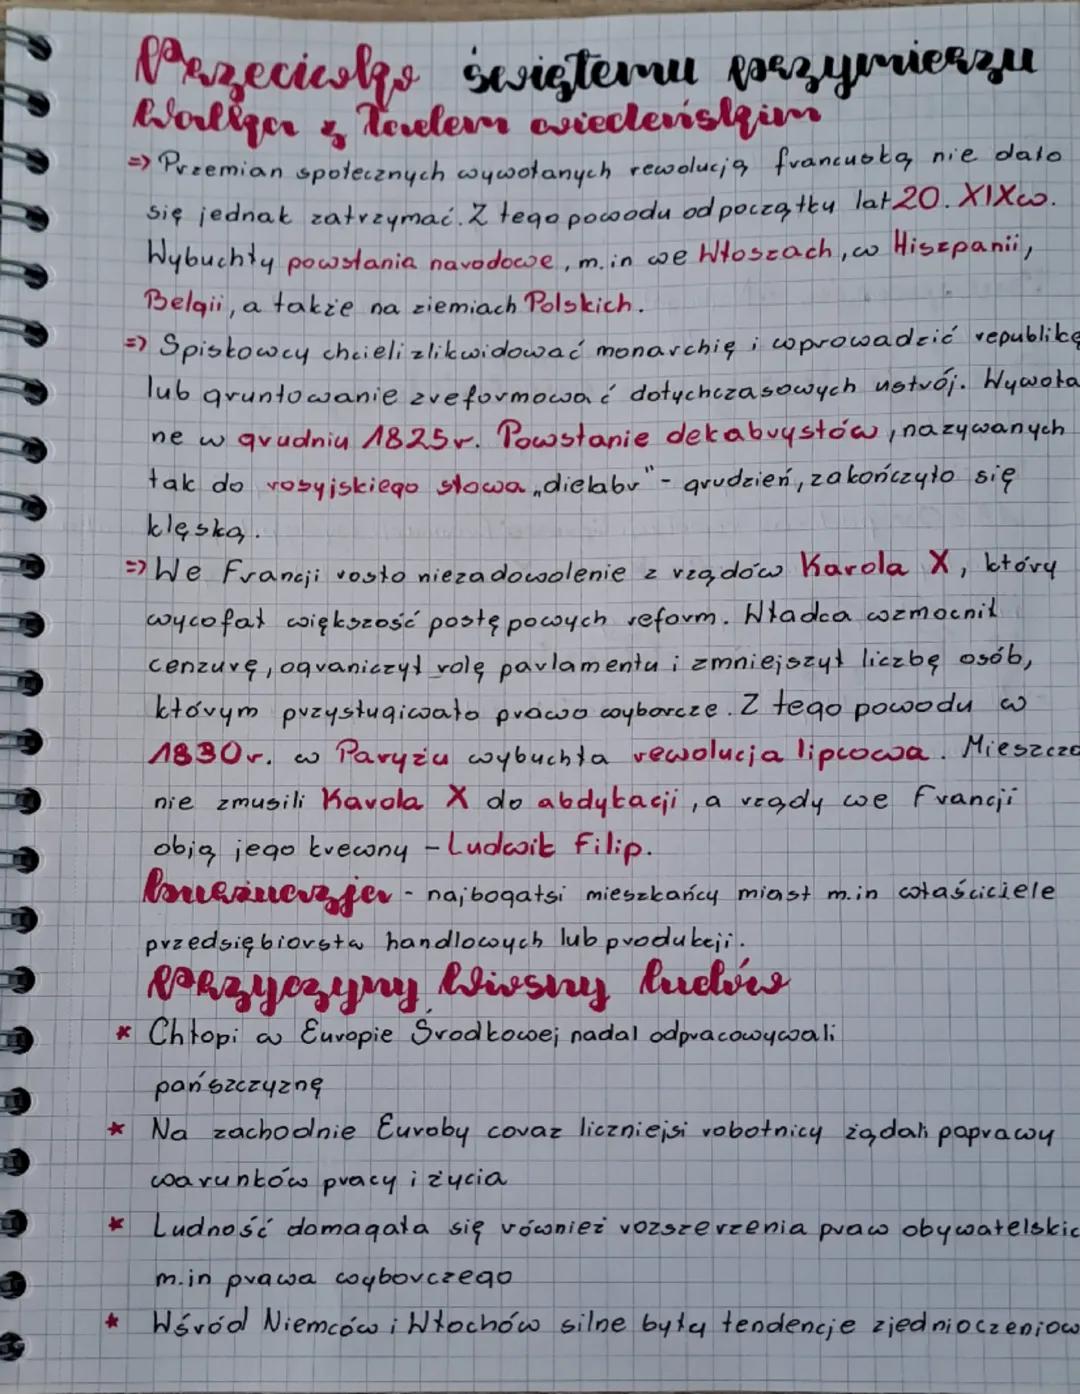 Przeciwko świętemu przymierzu
Walka z Ładem wiedeńskim
=> Przemian społecznych wywołanych rewolucją francuską nie dało
się jednak zatrzymać. Z tego powodu od początku lat 20. XIXw.
Wybuchły powstania narodowe, m.in we Włoszach, w Hiszpanii,
Belgii, a także na ziemiach Polskich.
=> Spiskowcy chcieli zlikwidować monarchię i wprowadzić republikę
lub gruntowanie zreformować dotychczasowych ustrój. Wywoła
ne w grudniu 1825r. Powstanie dekabrystów, nazywanych
tak do rosyjskiego słowa „diekabr" - grudzień, zakończyło się
klęską.
=> We Francji rosło niezadowolenie z rządów Karola X, który
wycofał większość postępowych reform. Władca wzmocnił
cenzurę, ograniczył rolę parlamentu i zmniejszył liczbę osób,
którym przysługiwało prawo wyborcze. Z tego powodu w
1830r. w Paryżu wybuchła rewolucja lipcowa. Mieszcza
nie zmusili Karola X do abdykacji, a rządy we Francji
objął jego krewny - Ludwik Filip.
Burżuazja - najbogatsi mieszkańcy miast m.in właściciele
przedsiębiorstw handlowych lub produkcji.
Przyczyny Wiosny Ludów
* Chłopi w Europie Środkowej nadal odpracowywali
pańszczyznę
* Na zachodnie Euroby coraz liczniejsi robotnicy żądali poprawy
warunków pracy i życia
* Ludność domagała się również rozszerzenia praw obywatelskic
m.in prawa wyborczego
* Wśród Niemców i Włochów silne były tendencje zjednioczeniow